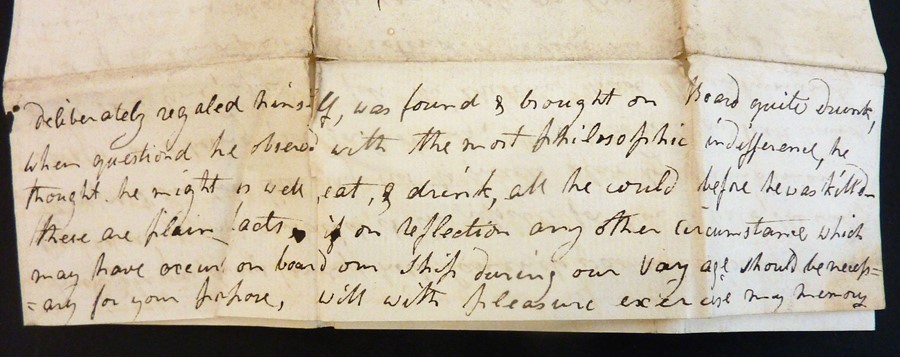 deliberately regaled himself, was found & brought on Board quite drunk,
when questiond he observd with the most philosophic indifference, he
thought he might as well eat, & drink, all he could before he was killd
these are plain facts, if on reflection any other circumstance which
may have occurd on board our Ship during our Voyage should be necess=
=ary for your porpose, will with pleasure exercise my memory